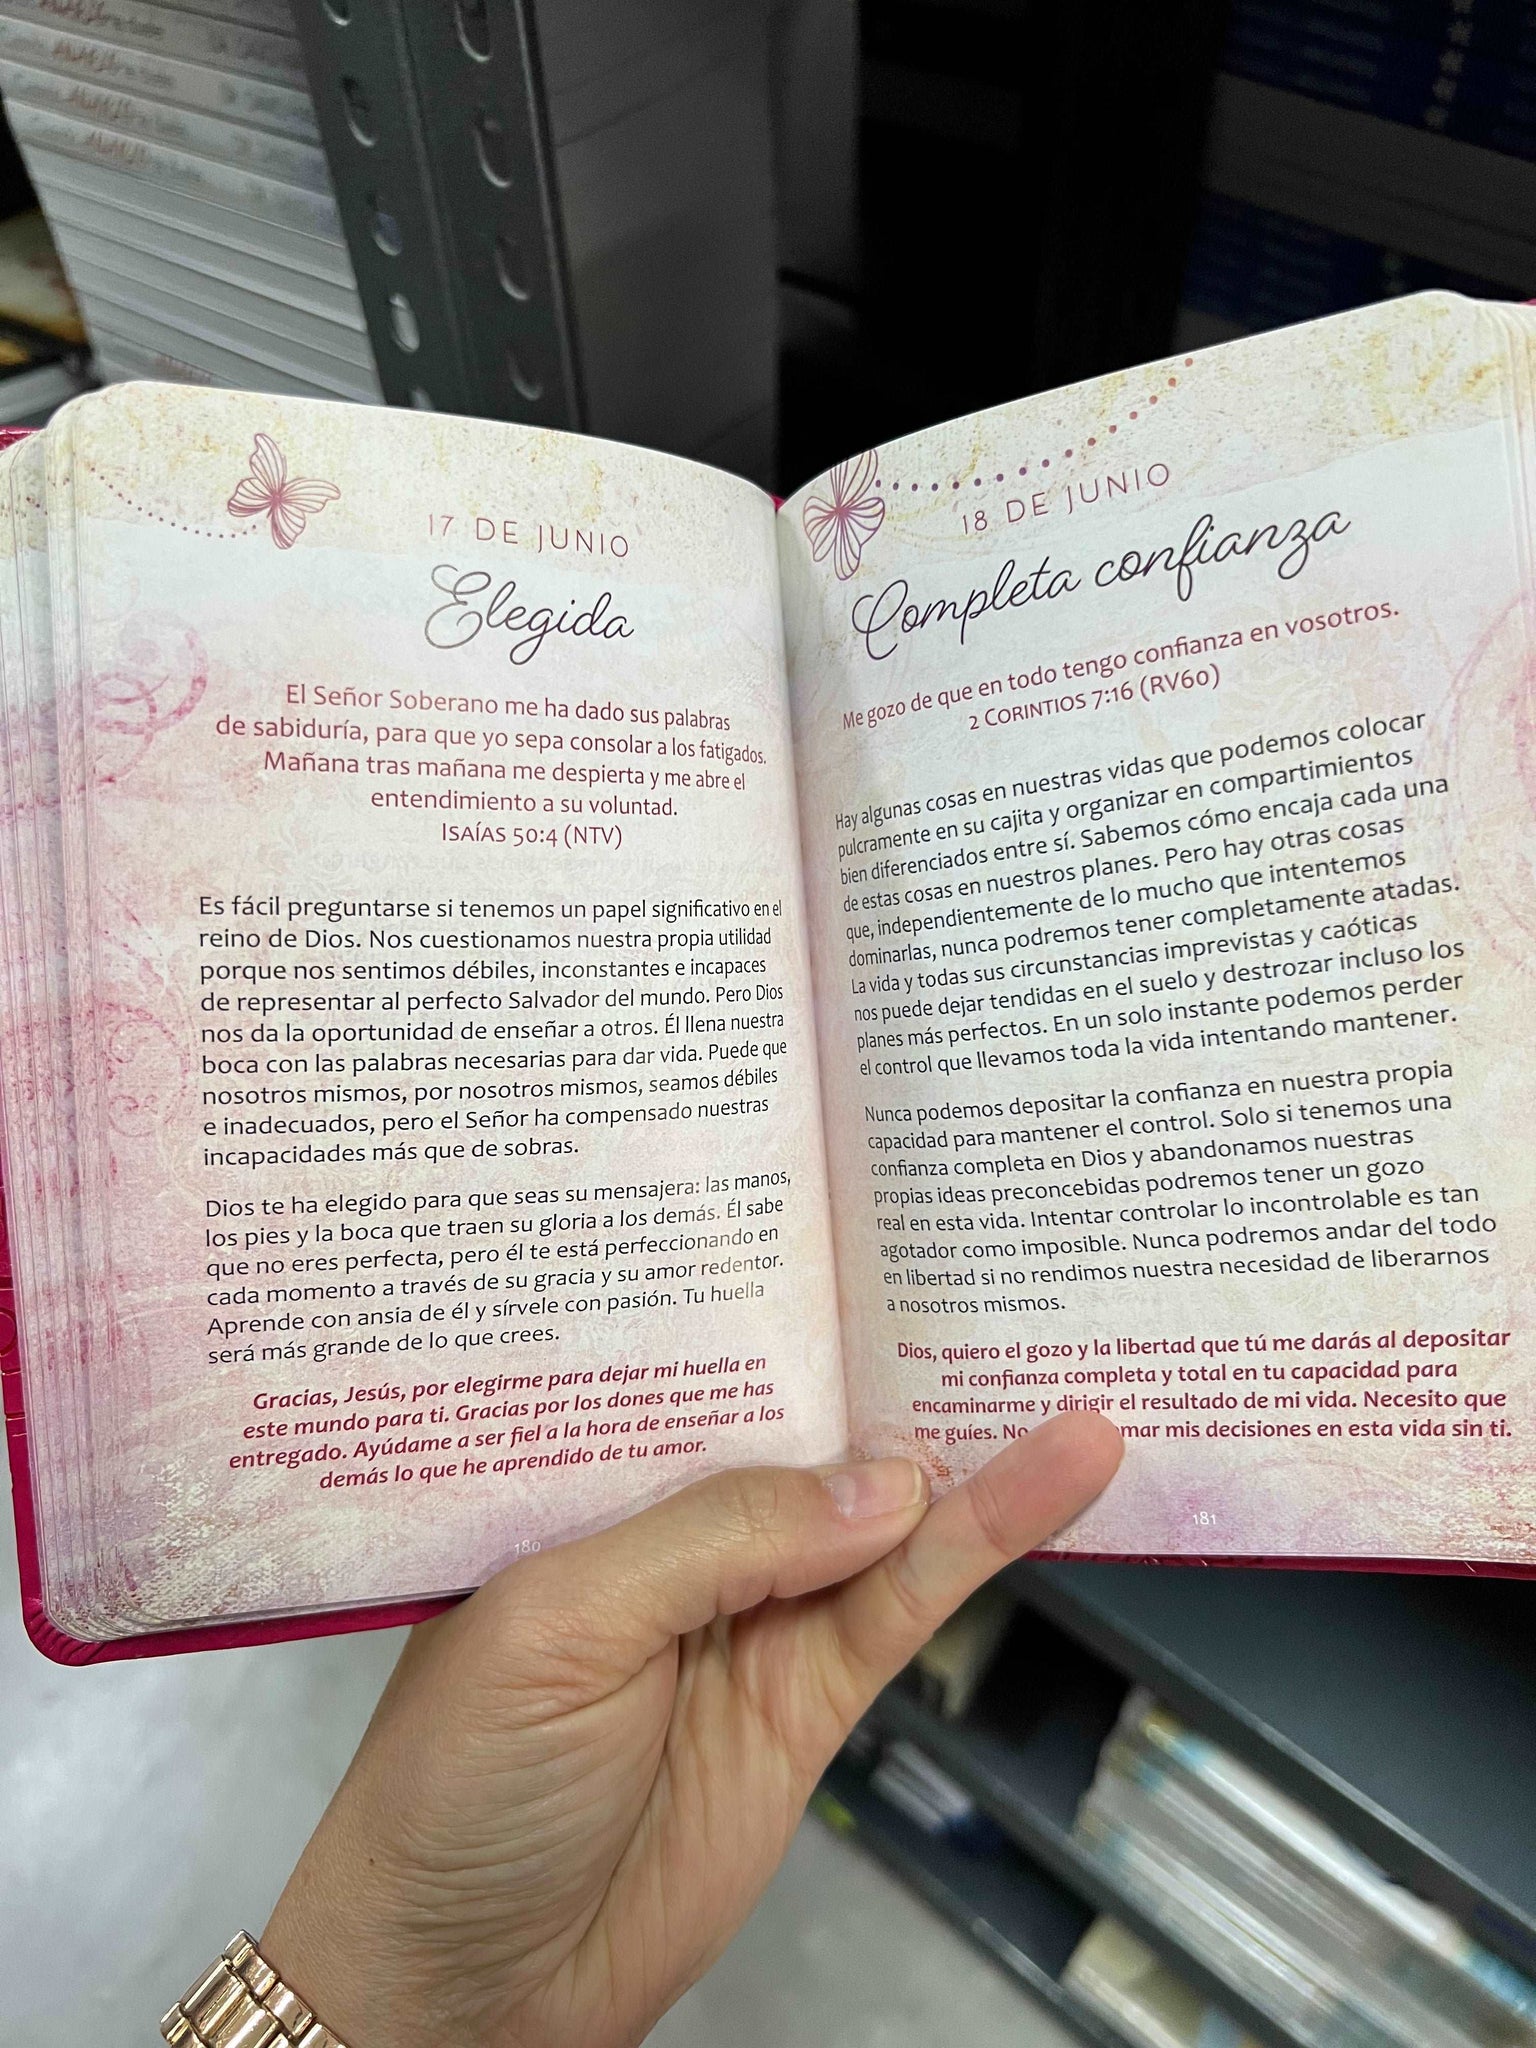 17 DE JUNIO
Elegida
El Señor Soberano me ha dado sus palabras
de sabiduría, para que yo sepa consolar a los fatigados.
Mañana tras mañana me despierta y me abre el
entendimiento a su voluntad.
ISAÍAS 50:4 (NTV)
Es fácil preguntarse si tenemos un papel significativo en el
reino de Dios. Nos cuestionamos nuestra propia utilidad
porque nos sentimos débiles, inconstantes e incapaces
de representar al perfecto Salvador del mundo. Pero Dios
nos da la oportunidad de enseñar a otros. Él llena nuestra
boca con las palabras necesarias para dar vida. Puede que
nosotros mismos, por nosotros mismos, seamos débiles
e inadecuados, pero el Señor ha compensado nuestras
incapacidades más que de sobras.
Dios te ha elegido para que seas su mensajera: las manos,
los pies y la boca que traen su gloria a los demás. Él sabe
que no eres perfecta, pero él te está perfeccionando en
cada momento a través de su gracia y su amor redentor.
Aprende con ansia de él y sírvele con pasión. Tu huella
será más grande de lo que crees.
Gracias, Jesús, por elegirme para dejar mi huella en
este mundo para ti. Gracias por los dones que me has
entregado. Ayúdame a ser fiel a la hora de enseñar a los
demás lo que he aprendido de tu amor.
180
18 DE JUNIO
Completa confianza
Me gozo de que en todo tengo confianza en vosotros.
2 CORINTIOS 7:16 (RV60)
Hay algunas cosas en nuestras vidas que podemos colocar
pulcramente en su cajita y organizar en compartimientos
bien diferenciados entre sí. Sabemos cómo encaja cada una
de estas cosas en nuestros planes. Pero hay otras cosas
que, independientemente de lo mucho que intentemos
dominarlas, nunca podremos tener completamente atadas.
La vida y todas sus circunstancias imprevistas y caóticas
nos puede dejar tendidas en el suelo y destrozar incluso los
planes más perfectos. En un solo instante podemos perder
el control que llevamos toda la vida intentando mantener.
Nunca podemos depositar la confianza en nuestra propia
capacidad para mantener el control. Solo si tenemos una
confianza completa en Dios y abandonamos nuestras
propias ideas preconcebidas podremos tener un gozo
real en esta vida. Intentar controlar lo incontrolable es tan
agotador como imposible. Nunca podremos andar del todo
en libertad si no rendimos nuestra necesidad de liberarnos
a nosotros mismos.
Dios, quiero el gozo y la libertad que tú me darás al depositar
mi confianza completa y total en tu capacidad para
encaminarme y dirigir el resultado de mi vida. Necesito que
me guíes. No mar mis decisiones en esta vida sin ti.
181